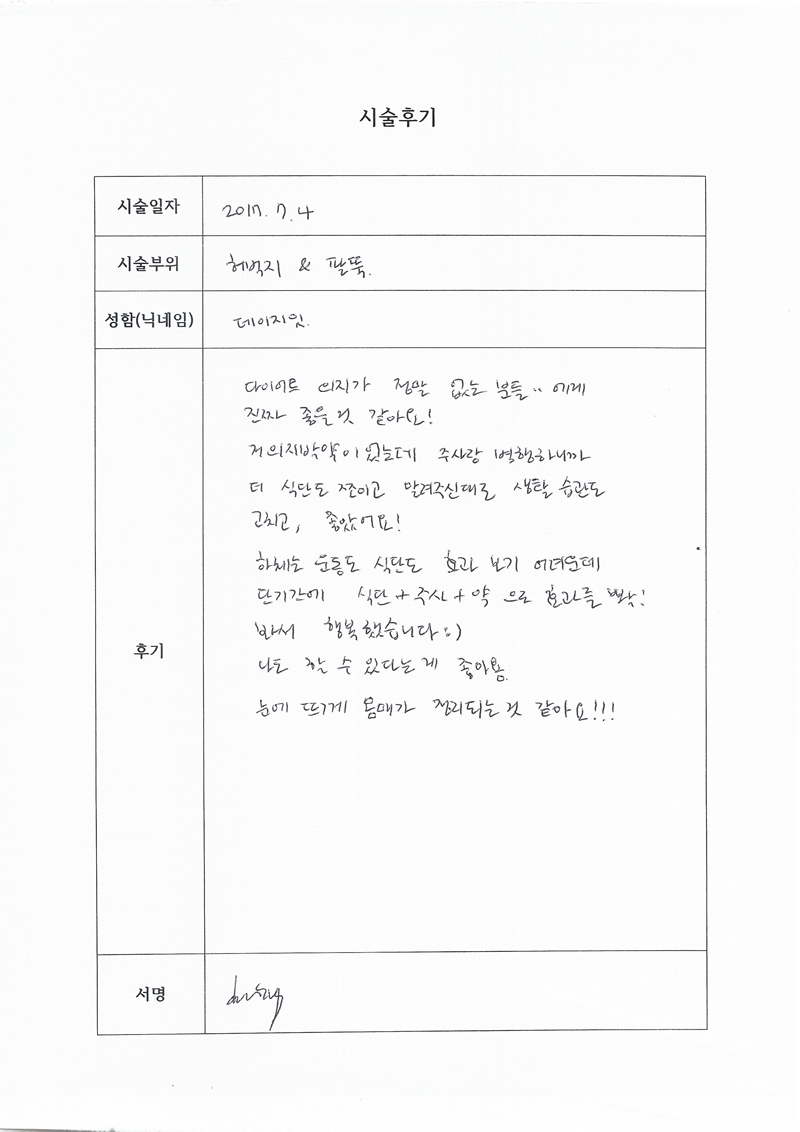 시술후기
시술일자 2017. 7. 4
시술부위 허벅지 & 팔뚝.
성함(닉네임) 데이지잇.
후기
다이어트 의지가 정말 없는 분들.. 에게
진짜 좋을것 같아요!
저 의지박약이 었는데 주사랑 병행하니까
더 식단도 조이고 말려주신대로 생활 습관도
고치고, 좋았어요!
하체는 운동도 식단도 효과 보기 어려운데
단기간에 식단+주사+약 으로 효과를 빡!
봐서 행복했습니다:)
나도 할 수 있다는게 좋아용.
눈에 뜨게 몸매가 정리되는것 같아요!!!
서명